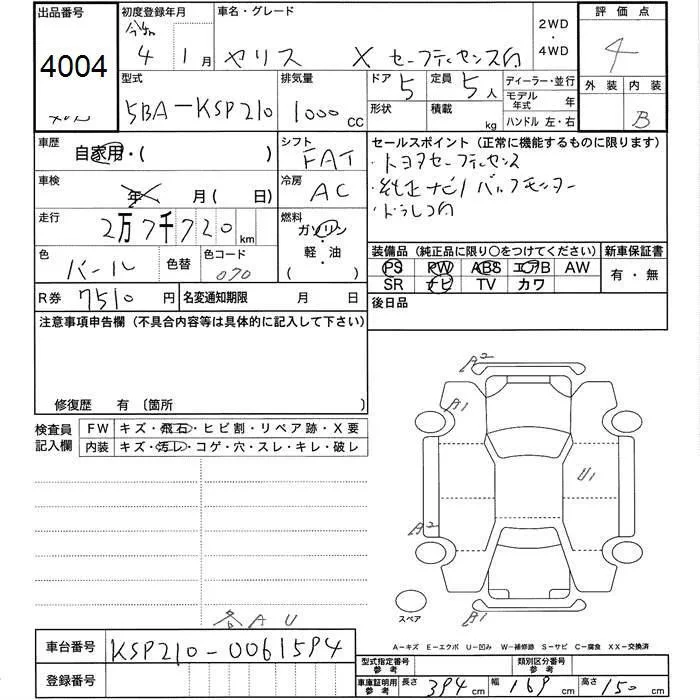 出品番号 初度登録年月 車名・グレード 2WD・4WD 評価点
4004 4年 1月 ヤリス X セーフティセンス付 4
型式 排気量 ドア 定員 ディーラー・並行 外装 内装
5BA-KSP210 1000cc 5 5人 モデル年式 年 B
形状 積載 kg ハンドル 左・右
車歴 自家用・( ) シフト FAT セールスポイント (正常に機能するものに限ります)
・トヨタセーフティセンス
車検 年 月( 日) 冷房 AC ・純正ナビ/バックモニター
走行 2万7千720km 燃料 ガソリン・軽・油 ( ) ・ドラレコ付
色 パール 色替 色コード 070 装備品 (純正品に限り○をつけてください) 新車保証書
PS PW ABS エアB AW 有・無
R券 7510円 名変通知期限 月 日 SR ナビ TV カワ
注意事項申告欄 (不具合内容等は具体的に記入して下さい) 後日品
修復歴 有 〔箇所 〕
検査員記入欄 FW キズ・飛石・ヒビ割・リペア跡・X要
内装 キズ・汚レ・コゲ・穴・スレ・キレ・破レ
A2
B1
U1
A2
B1
スペア
各AU
A−キズ E−エクボ U−凹み W−補修跡 S−サビ C−腐食 XX−交換済
車台番号 KSP210-0061594
型式指定番号 参考 類別区分番号 参考
登録番号 車庫証明用参考 長さ 394cm 幅 169cm 高さ 150cm